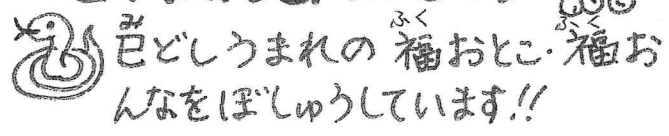 巳どしうまれの福おとこ・福お
んなをぼしゅうしています!!